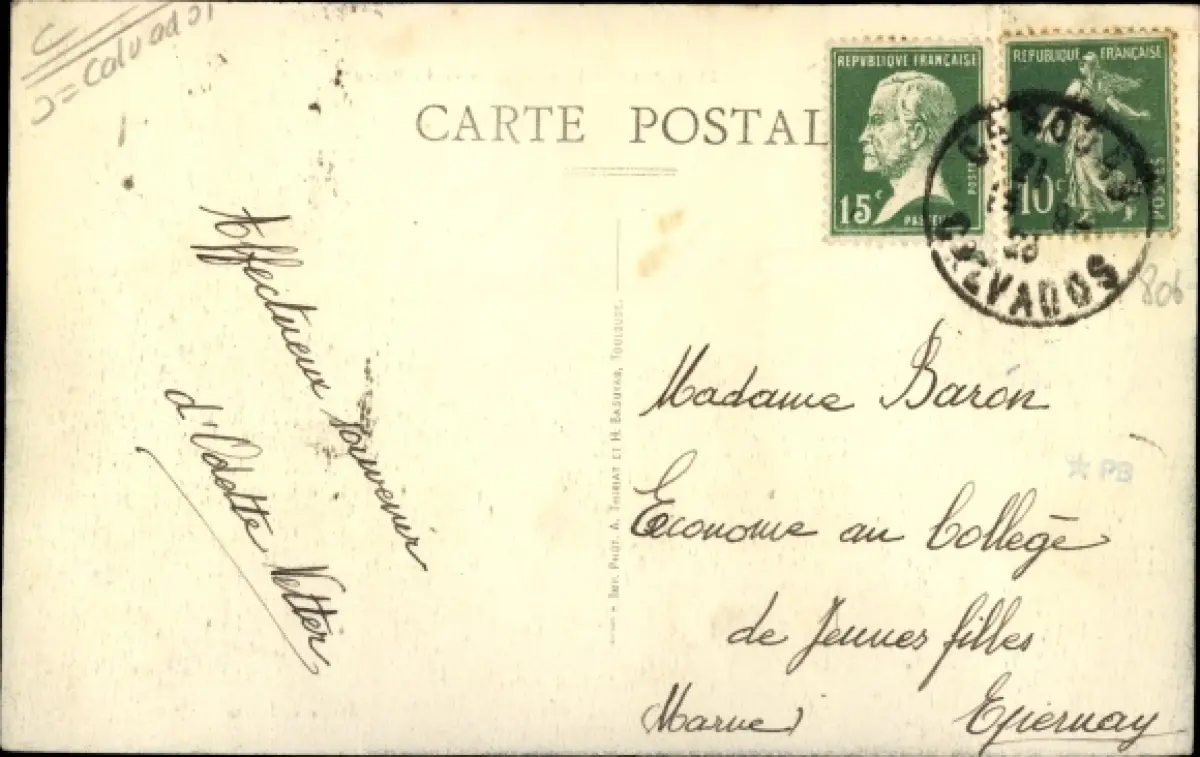 C
= Calvados
CARTE POSTALE
REPVBLIQUE FRANÇAISE
15c
POSTES
PASTEUR
REPUBLIQUE FRANÇAISE
10c
POSTES
CALVADOS
806
Affectueux souvenir
d'Odette Vetter
Imp. Phot. A. Thiriat et H. Basuyau, Toulouse.
Madame Baron
Econome au Collège
de Jeunes filles
Marne)
Epernay
PB